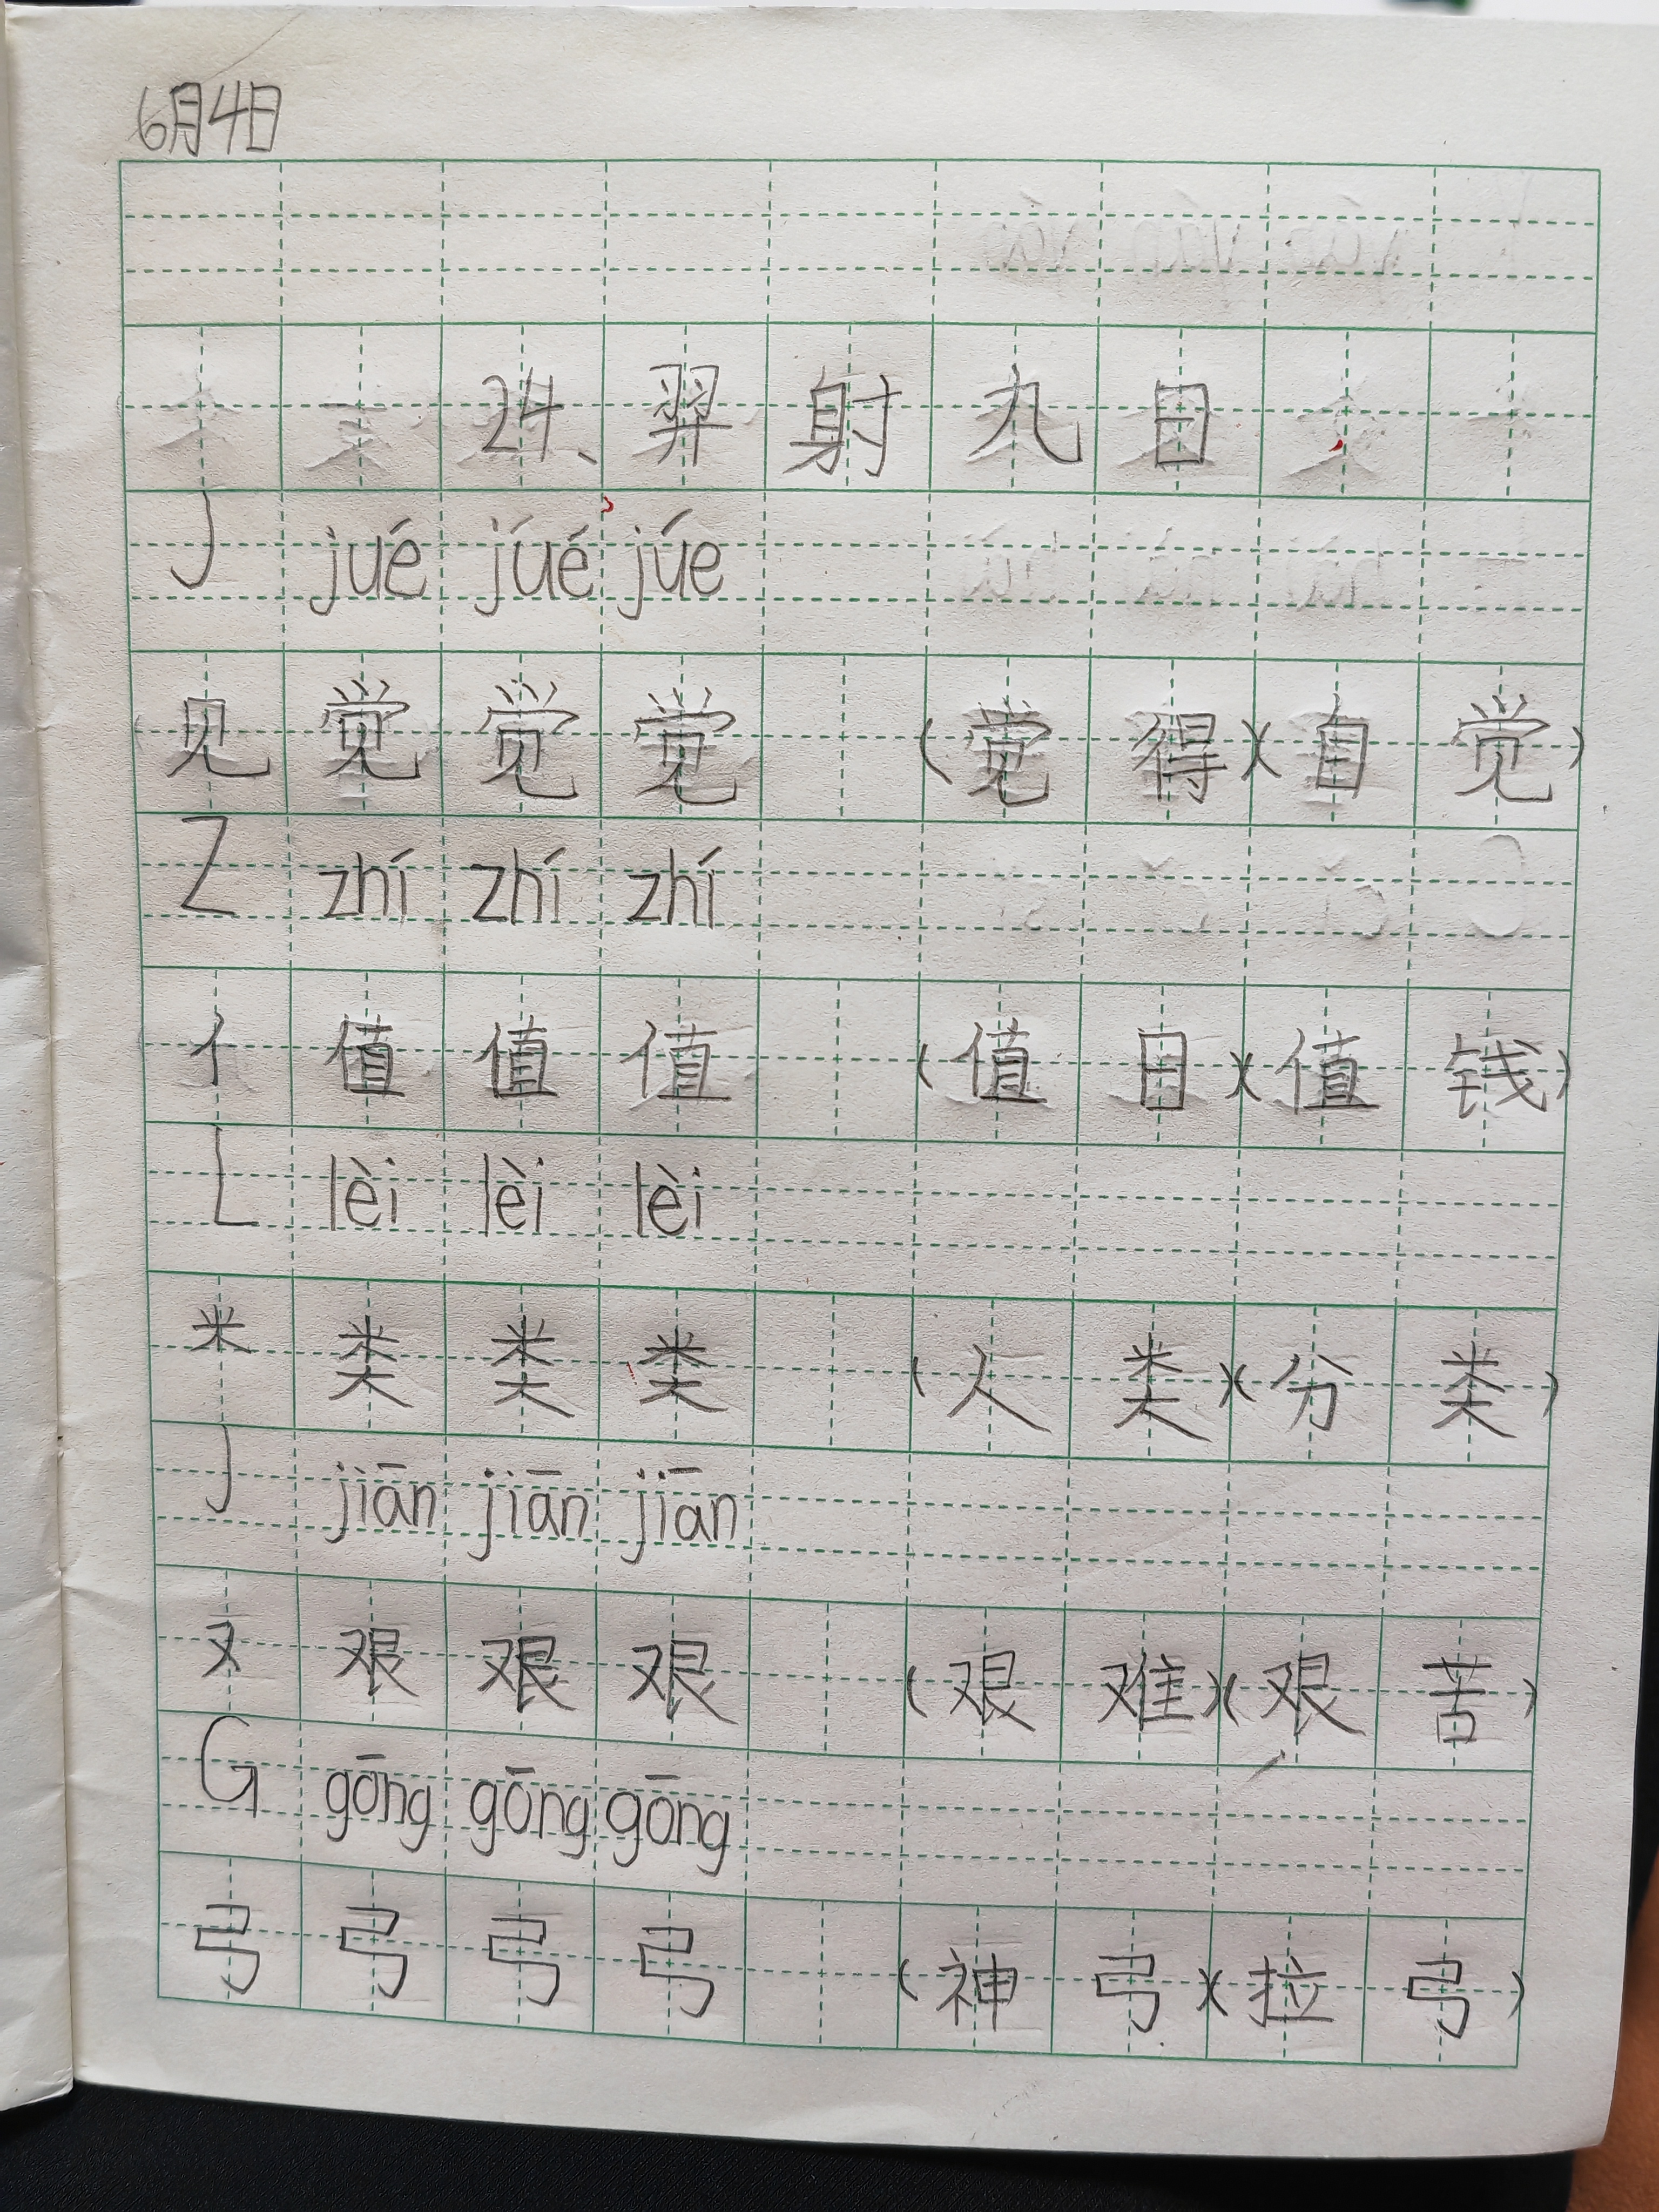 6月4日
24、羿射九日
J jué júé júe
见 觉 觉 觉 (觉得)(自觉)
Z zhí zhí zhí
亻 值 值 值 (值日)(值钱)
L lèi lèi lèi
米 类 类 类 (人类)(分类)
J jiān jiān jiān
又 艰 艰 艰 (艰难)(艰苦)
G gōng gōng gōng
弓 弓 弓 弓 (神弓)(拉弓)